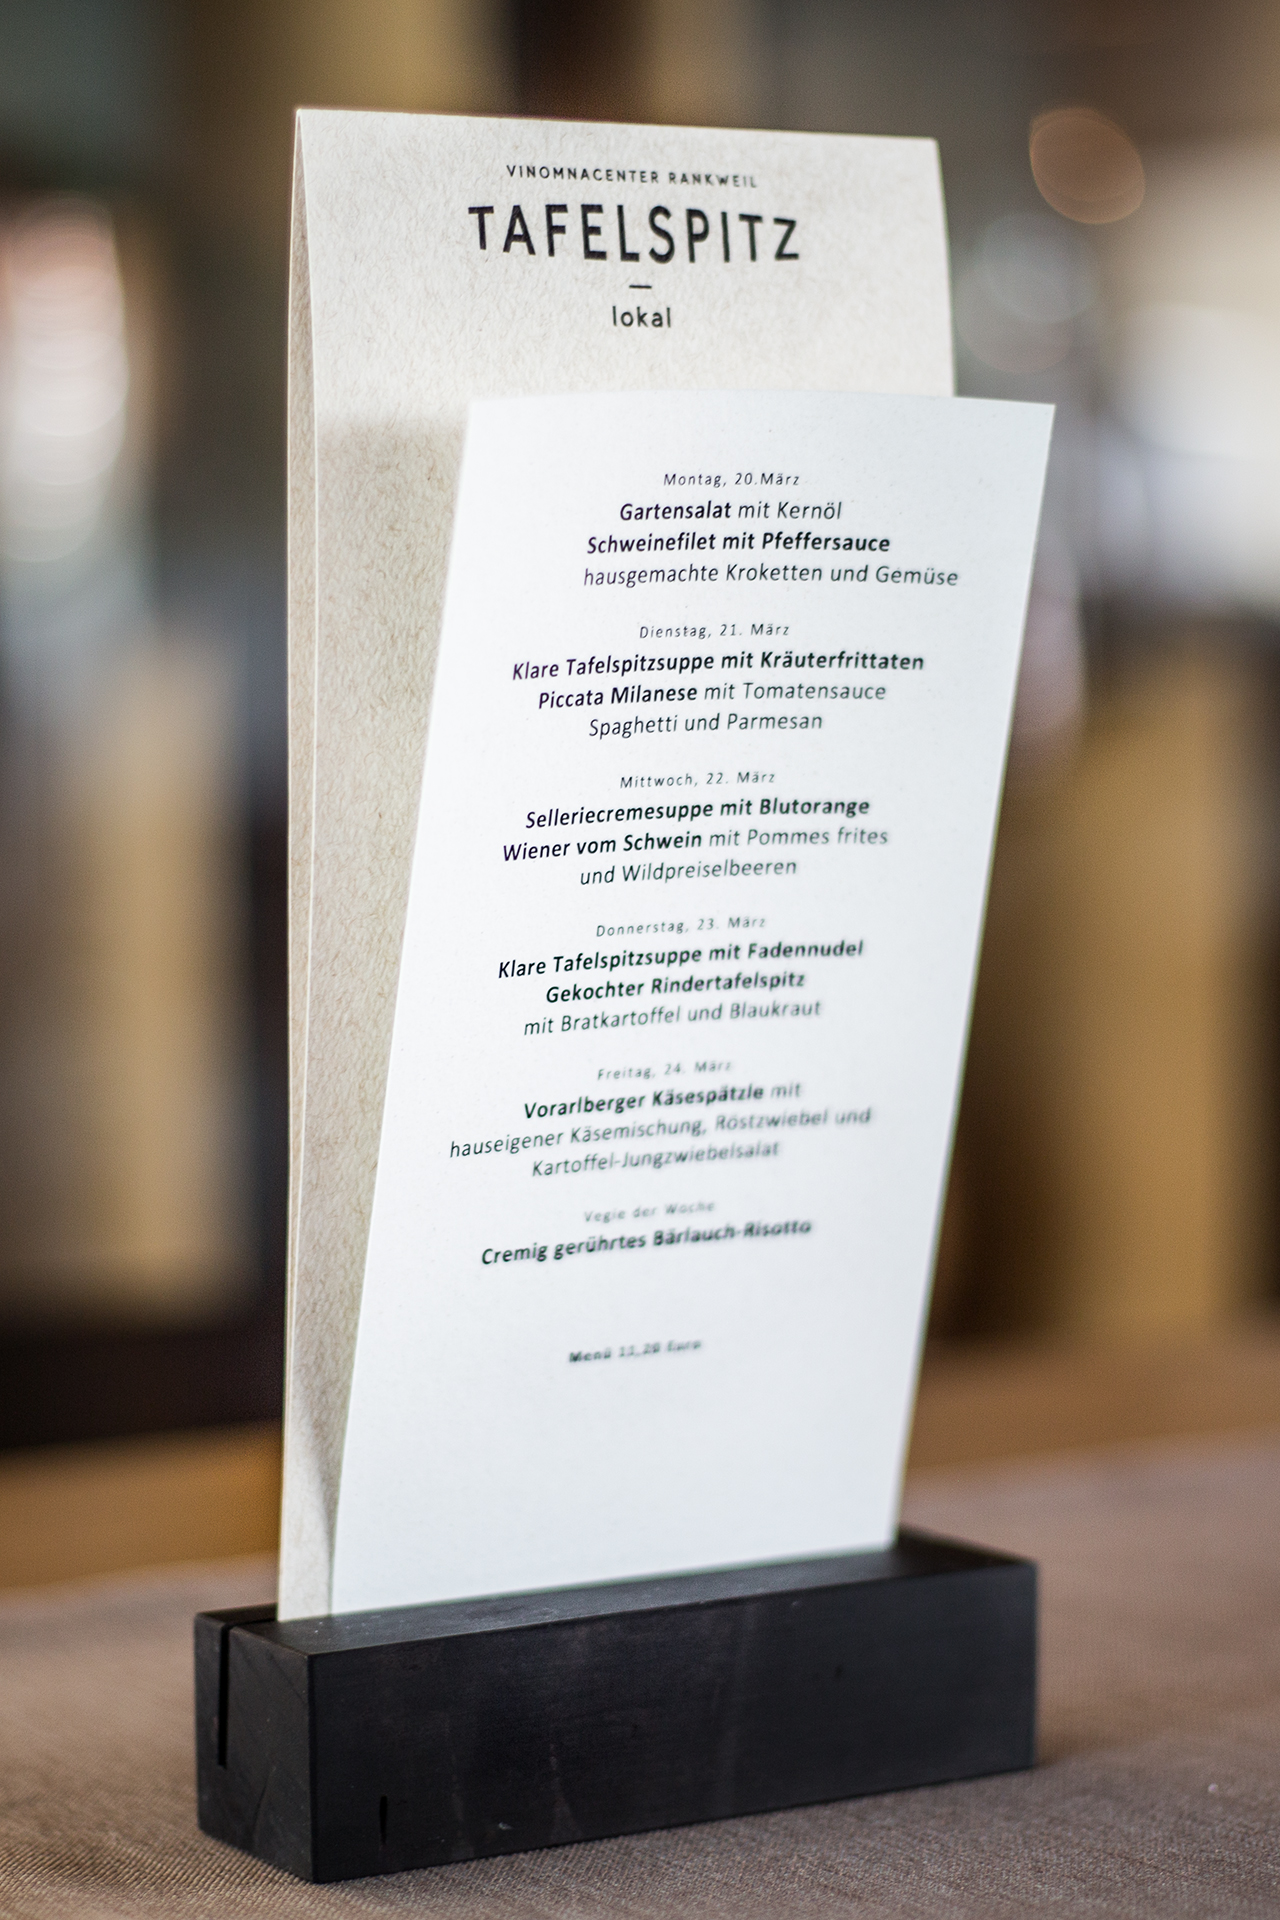 VINOMNACENTER RANKWEIL
TAFELSPITZ
—
lokal
Montag, 20.März
Gartensalat mit Kernöl
Schweinefilet mit Pfeffersauce
hausgemachte Kroketten und Gemüse
Dienstag, 21. März
Klare Tafelspitzsuppe mit Kräuterfrittaten
Piccata Milanese mit Tomatensauce
Spaghetti und Parmesan
Mittwoch, 22. März
Selleriecremesuppe mit Blutorange
Wiener vom Schwein mit Pommes frites
und Wildpreiselbeeren
Donnerstag, 23. März
Klare Tafelspitzsuppe mit Fadennudel
Gekochter Rindertafelspitz
mit Bratkartoffel und Blaukraut
Freitag, 24. März
Vorarlberger Käsespätzle mit
hauseigener Käsemischung, Röstzwiebel und
Kartoffel-Jungzwiebelsalat
Vegie der Woche
Cremig gerührtes Bärlauch-Risotto
Menü 11,20 Euro